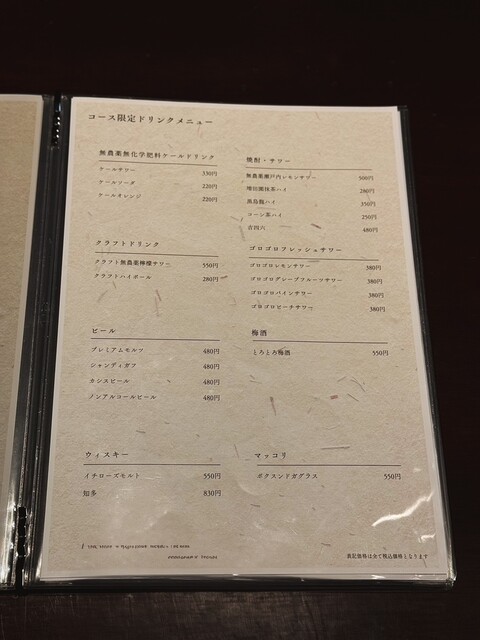 コース限定ドリンクメニュー
無農薬無化学肥料ケールドリンク
ケールサワー 330円
ケールソーダ 220円
ケールオレンジ 220円
クラフトドリンク
クラフト無農薬檸檬サワー 550円
クラフトハイボール 280円
ビール
プレミアムモルツ 480円
シャンディガフ 480円
カシスビール 480円
ノンアルコールビール 480円
ウィスキー
イチローズモルト 550円
知多 830円
焼酎・サワー
無農薬瀬戸内レモンサワー 500円
抹茶ハイ 280円
烏龍ハイ 350円
コーン茶ハイ 250円
吉四六 480円
ゴロゴロフレッシュサワー
ゴロゴロレモンサワー 380円
ゴロゴログレープフルーツサワー 380円
ゴロゴロパインサワー 380円
ゴロゴロピーチサワー 380円
梅酒
とろとろ梅酒 550円
マッコリ
ボクスンドガグラス 550円
表記価格は全て税込価格となります